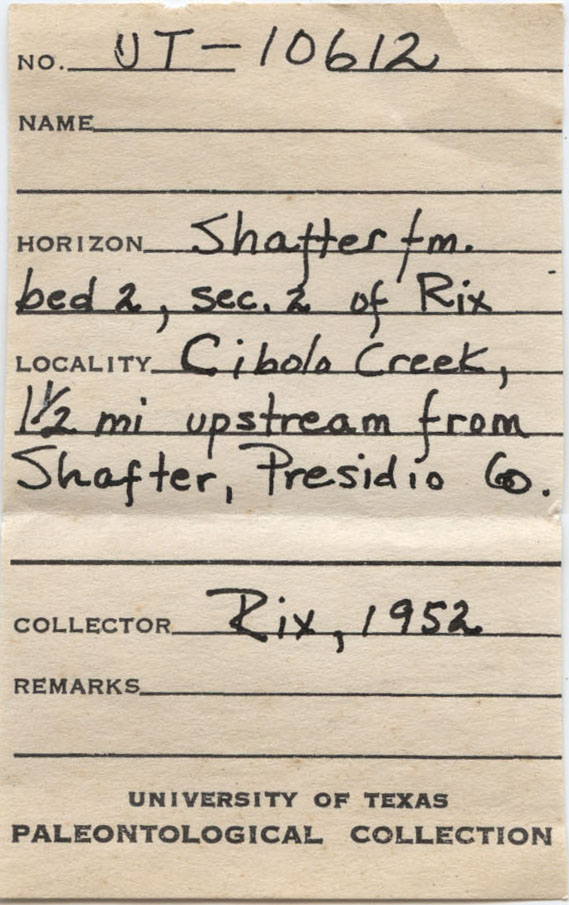 NO. UT-10612
NAME
HORIZON Shafter fm.
bed 2, sec. 2 of Rix
LOCALITY Cibolo Creek,
1 1/2 mi upstream from
Shafter, Presidio Co.
COLLECTOR Rix, 1952
REMARKS
UNIVERSITY OF TEXAS
PALEONTOLOGICAL COLLECTION